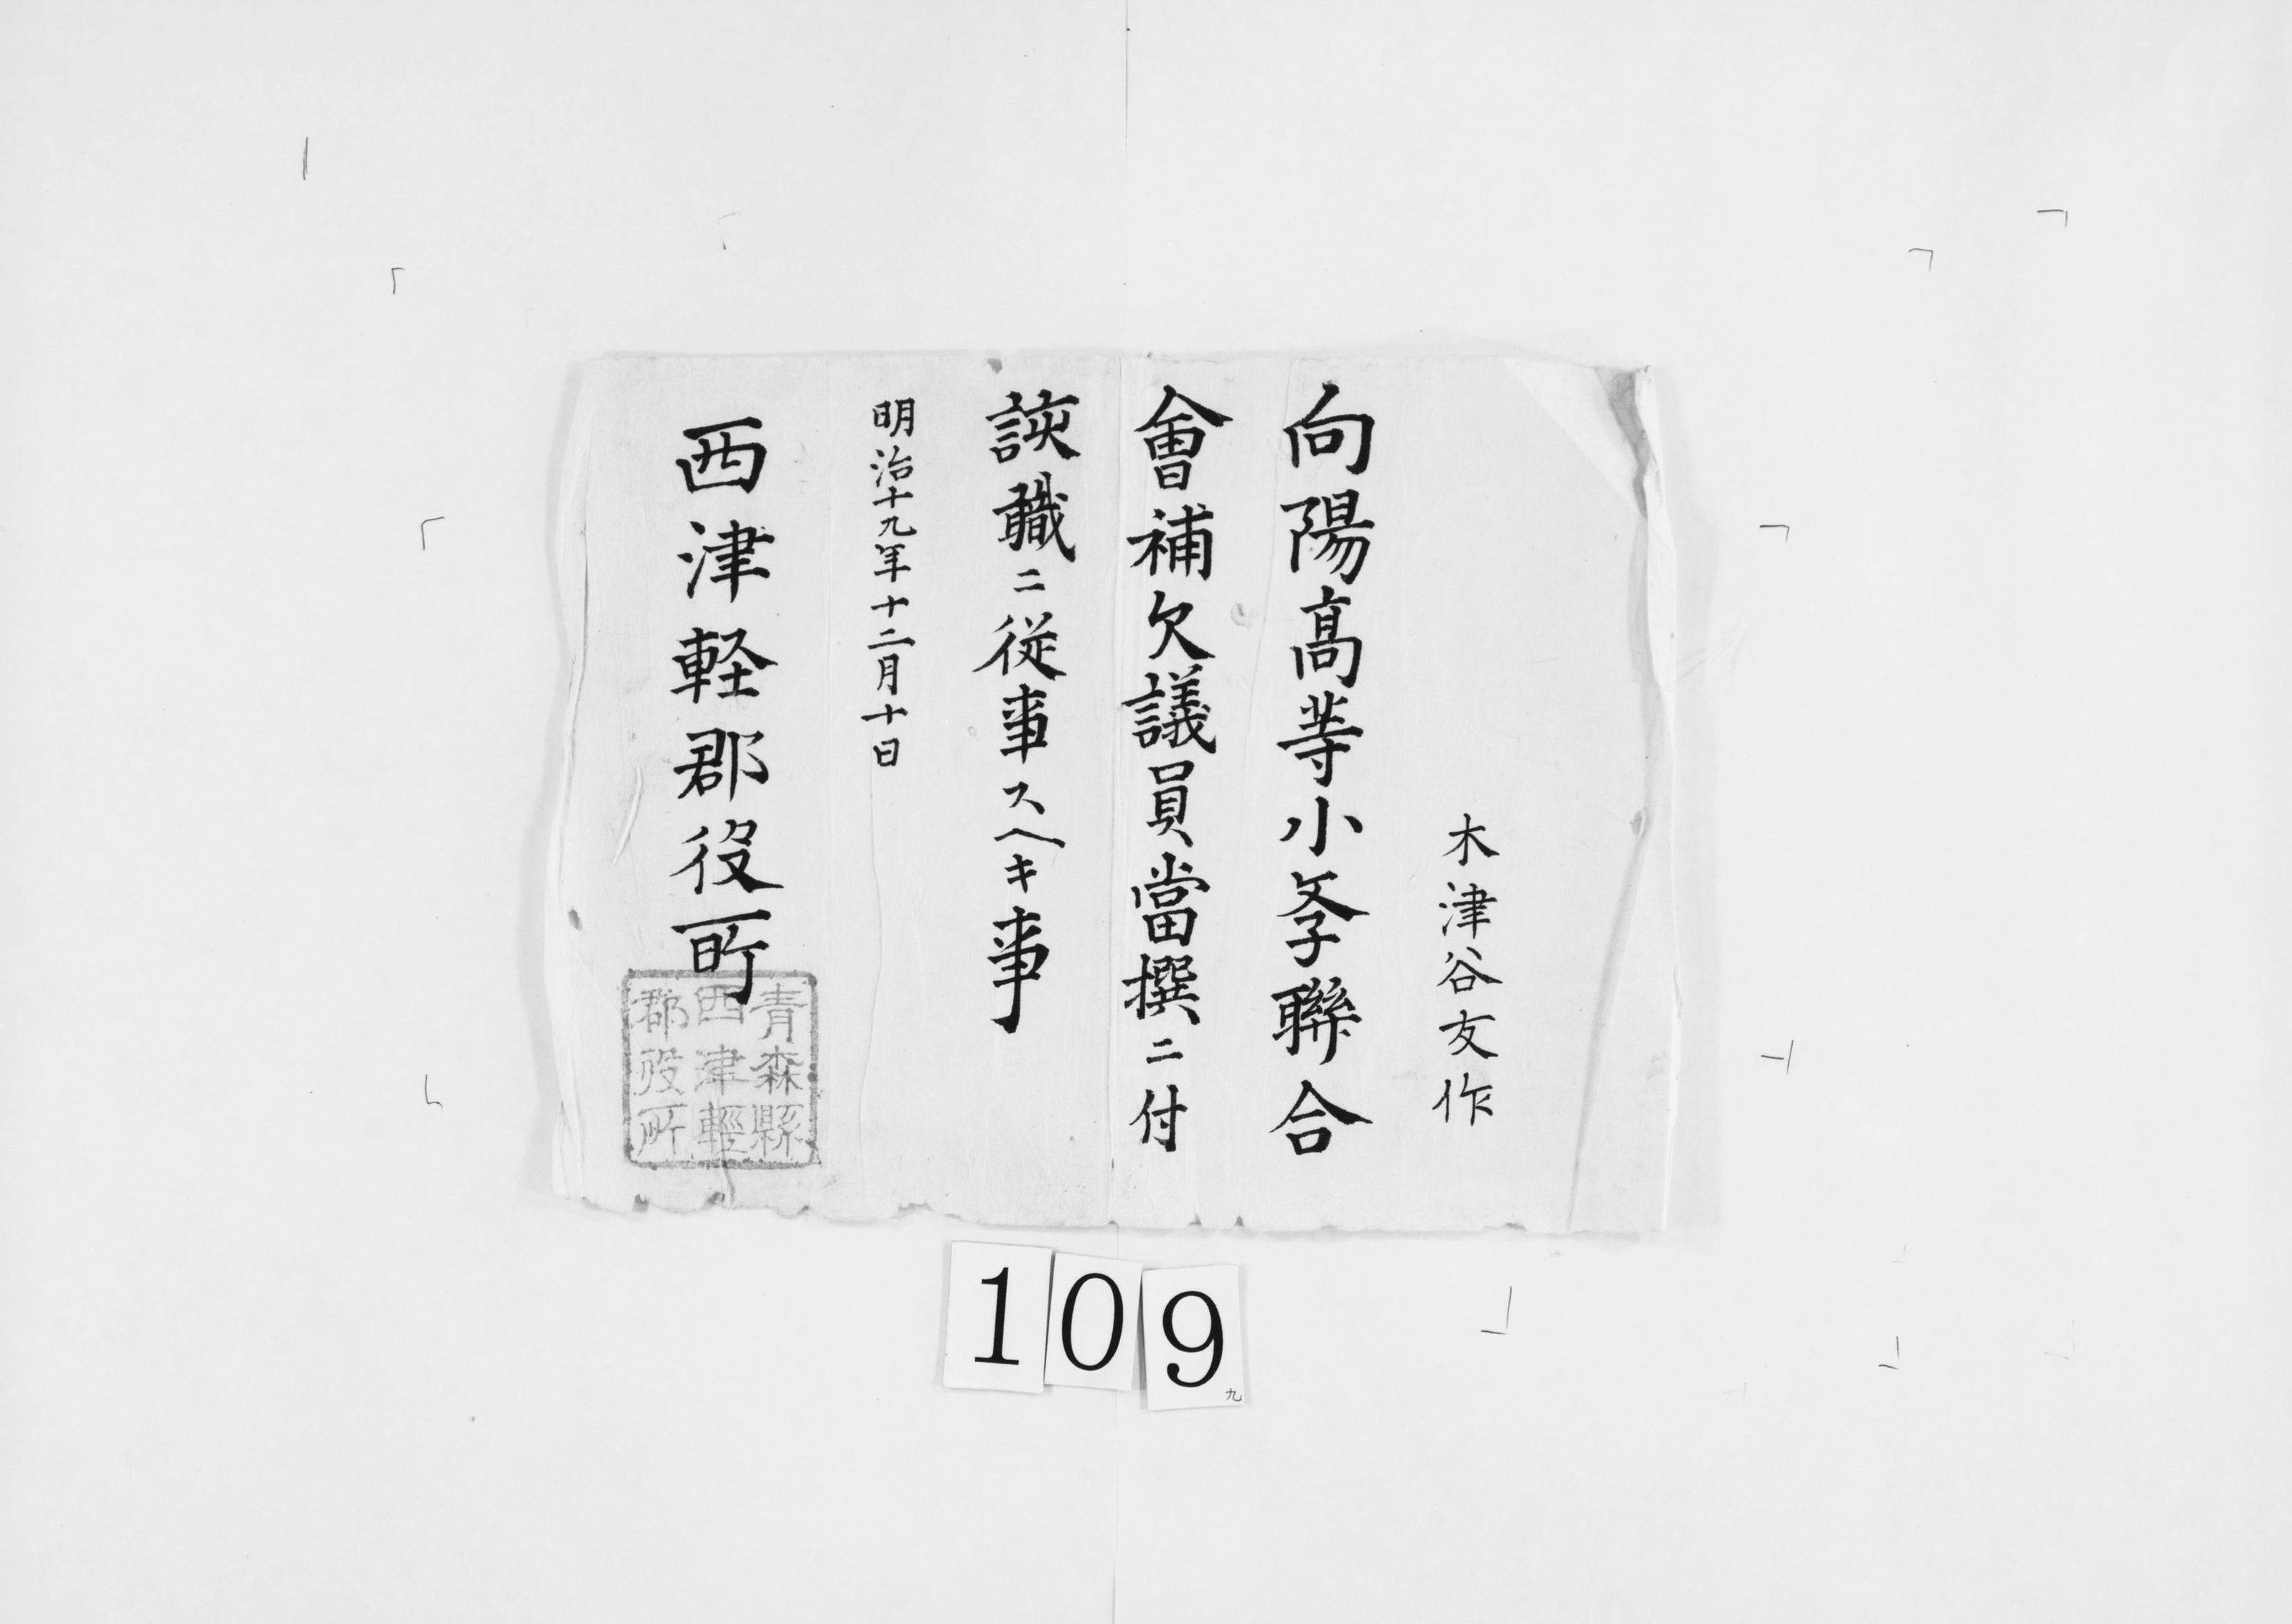 木津谷友作
向陽高等小学聯合
會補欠議員當撰ニ付
該職ニ従事スヘキ事
明治十九年十二月十日
西津軽郡役所
青森縣
西津輕
郡役所
109
九